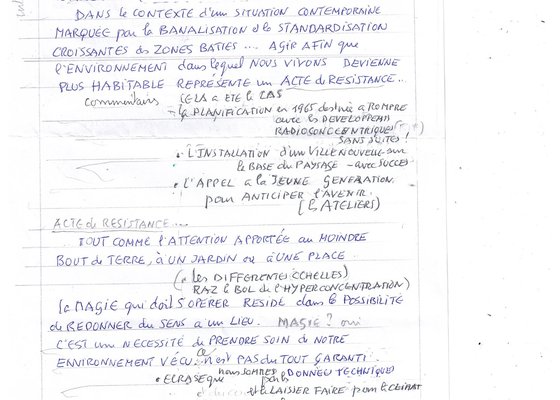 DANS le CONTEXTE d'une SITUATION CONTEMPORAINE
MARQUEE par la BANALISATION et la STANDARDISATION
CROISSANTES des ZONES BATIES ... AGIR AFIN que
l'ENVIRONNEMENT dans lequel NOUS VIVONS DEVIENNE
PLUS HABITABLE REPRESENTE un ACTE de RESISTANCE...
commentaires CELA a ETE le CAS
- la PLANIFICATION en 1965 destinée a ROMPRE
avec les DEVELOPPEMENTS
RADIOCONCENTRIQUES
SANS SUITES!
• L'INSTALLATION d'un VILLE NOUVELLE sur
la BASE du PAYSAGE - avec SUCCES
• l'APPEL a la JEUNE GENERATION
pour ANTICIPER l'AVENIR.
(les ATELIERS)
ACTE de RESISTANCE...
TOUT COMME l'ATTENTION APPORTÉE au MOINDRE
BOUT de TERRE, à UN JARDIN ou à UNE PLACE.
(a les DIFFERENTES ECHELLES)
RAZ le BOL de l'HYPERCONCENTRATION)
la MAGIE qui doit S'OPERER RESIDE dans la POSSIBILITE
de REDONNER du SENS a un LIEU. MAGIE? oui
C'EST un NECESSITÉ de PRENDRE SOIN de NOTRE
ENVIRONNEMENT VÉCU. ce n'est PAS du TOUT GARANTI.
• ECRASE que nous SOMMES par les DONNEES TECHNIQUES
et le LAISSER FAIRE pour le CLIMAT